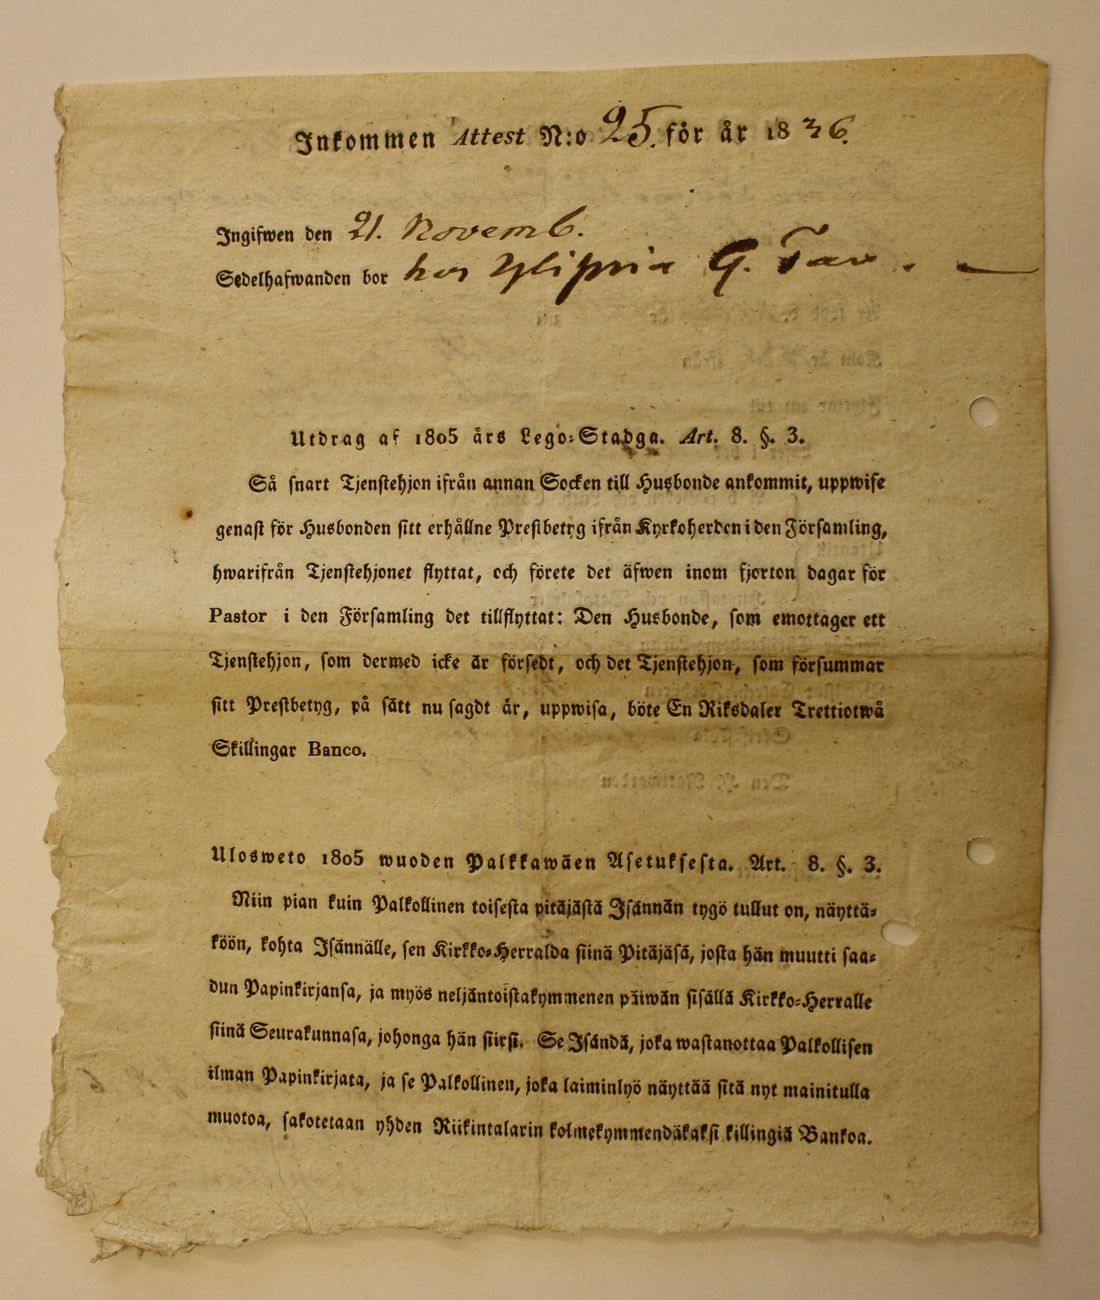 Inkommen Attest N:o 25. för år 1836.
Ingifwen den 21. Novemb.
Sedelhafwanden bor hos
Utdrag af 1805 års Lego-Stadga. Art. 8. §. 3.
Så snart Tjenstehjon ifrån annan Socken till Husbonde ankommit, uppwise
genast för Husbonden sitt erhållne Prestbetyg ifrån Kyrkoherden i den Församling,
hwarifrån Tjenstehjonet flyttat, och förete det äfwen inom fjorton dagar för
Pastor i den Församling det tillflyttat: Den Husbonde, som emottager ett
Tjenstehjon, som dermed icke är försedt, och det Tjenstehjon, som försummar
sitt Prestbetyg, på sätt nu sagdt är, uppwisa, böte En Riksdaler Trettiotwå
Skillingar Banco.
Ulosweto 1805 wuoden Palkkawäen Asetuksesta. Art. 8. §. 3.
Niin pian kuin Palkollinen toisesta pitäjästä Isännän tygö tullut on, näyttä-
köön, kohta Isännälle, sen Kirkko-Herralda siinä Pitäjäsä, josta hän muutti saa-
dun Papinkirjansa, ja myös neljäntoistakymmenen päiwän sisällä Kirkko-Herralle
siinä Seurakunnasa, johonga hän siirsi. Se Isändä, joka wastanottaa Palkollisen
ilman Papinkirjata, ja se Palkollinen, joka laiminlyö näyttää sitä nyt mainitulla
muotoa, sakotetaan yhden Riikintalarin kolmekymmendäkaksi killingiä Bankoa.